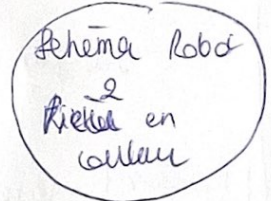 Schéma Robot
2
en
couleur